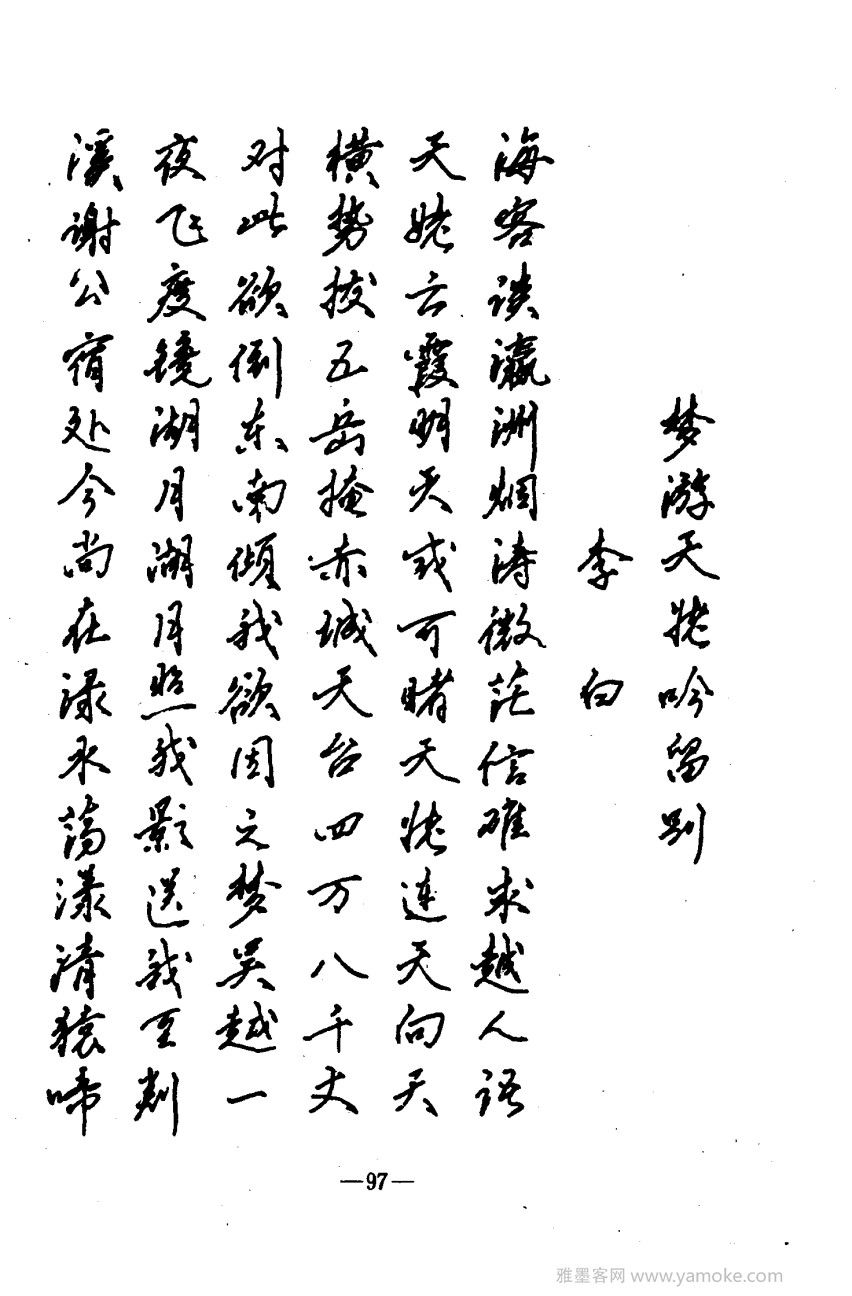 梦游天姥吟留别
李白
海客谈瀛洲烟涛微茫信难求越人语
天姥云霞明灭或可睹天姥连天向天
横势拔五岳掩赤城天台四万八千丈
对此欲倒东南倾我欲因之梦吴越一
夜飞度镜湖月湖月照我影送我至剡
溪谢公宿处今尚在渌水荡漾清猿啼
—97—
雅墨客网 www.yamoke.com